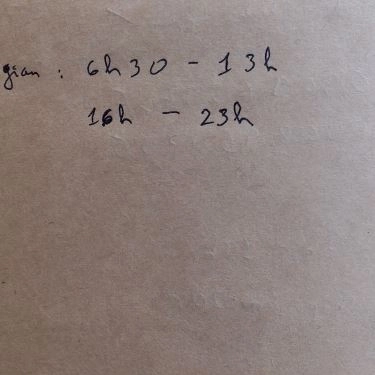 gian : 6h30 - 13h
16h - 23h